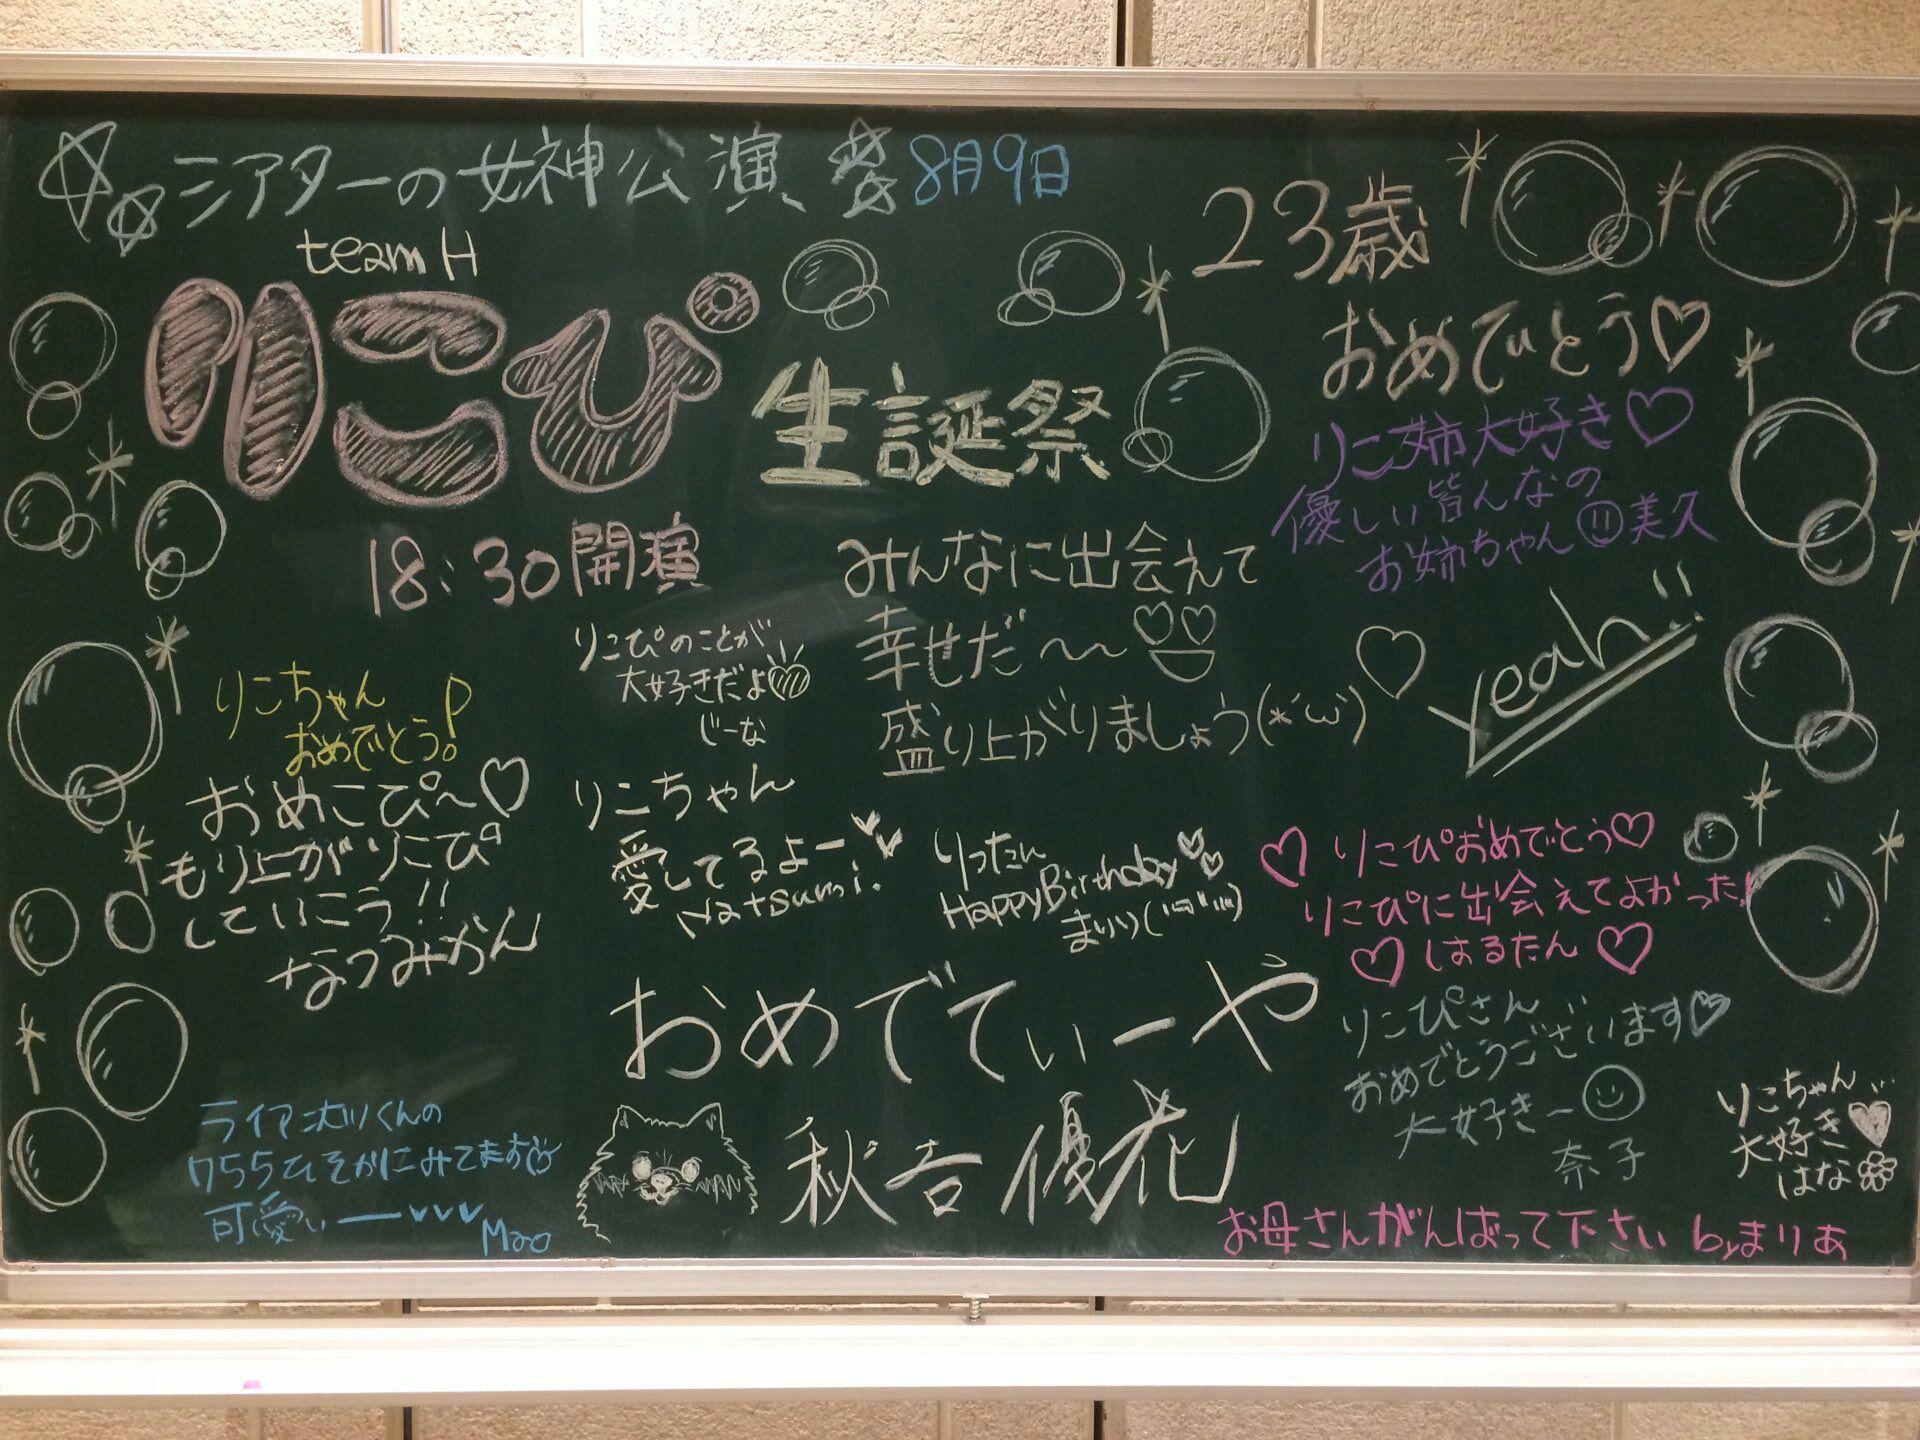 シアターの女神公演 8月9日
team H
りこぴ
生誕祭
18:30開演
23歳
おめでとう♡
りこ姉大好き♡
優しい皆んなの
お姉ちゃん 美久
みんなに出会えて
幸せだ〜〜
盛り上がりましょう(*´ω`)♡
Yeah!!
りこぴのことが
大好きだよ
じーな
りこちゃん
おめでとう!
おめこぴ〜♡
もり上がりこぴ
していこう!!
なつみかん
りこちゃん
愛してるよー
Natsumi.
りったん
Happy Birthday
まりり
♡りこぴおめでとう♡
りこぴに出会えてよかった!
♡はるたん♡
おめでてぃーや
秋吉優花
りこぴさん
おめでとうございます♡
大好きー
奈子
りこちゃん
大好き
はな
ライアン
ひそかにみてます
可愛いー
Mao
お母さんがんばって下さい byまりあ